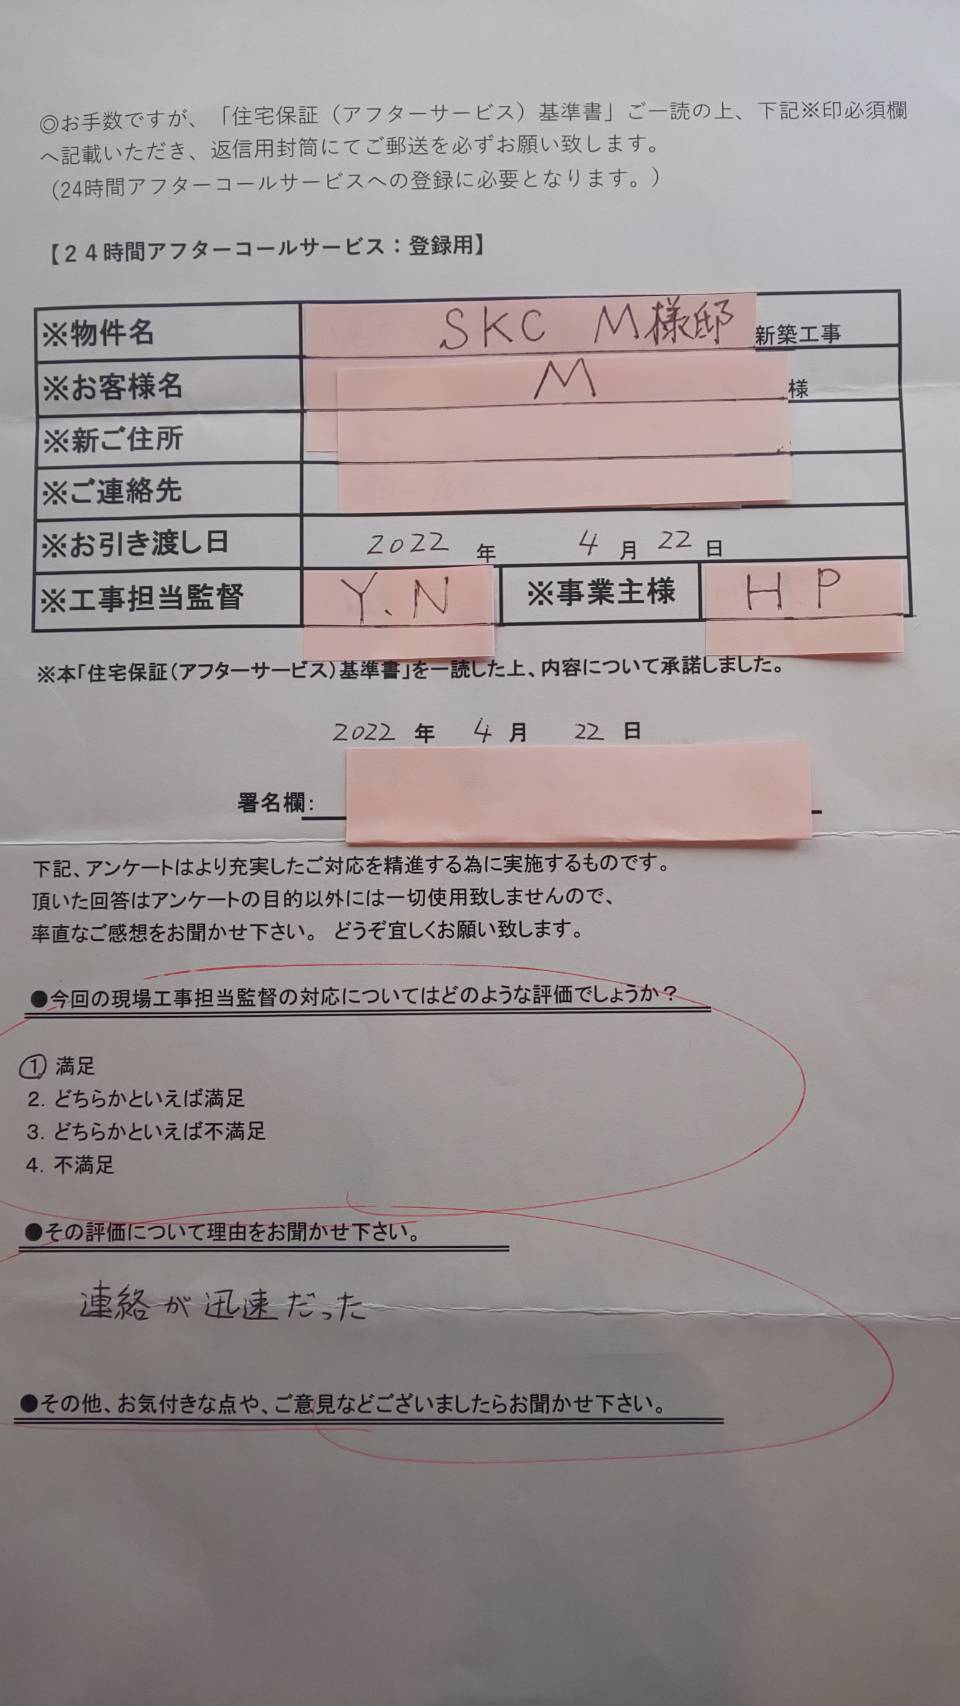 ◎お手数ですが、「住宅保証（アフターサービス）基準書」ご一読の上、下記※印必須欄
へ記載いただき、返信用封筒にてご郵送を必ずお願い致します。
（24時間アフターコールサービスへの登録に必要となります。）
【２４時間アフターコールサービス：登録用】
※物件名 SKC M様邸 新築工事
※お客様名 M 様
※新ご住所
※ご連絡先
※お引き渡し日 2022 年 4 月 22 日
※工事担当監督 Y.N ※事業主様 HP
※本「住宅保証（アフターサービス）基準書」を一読した上、内容について承諾しました。
2022 年 4 月 22 日
署名欄：
下記、アンケートはより充実したご対応を精進する為に実施するものです。
頂いた回答はアンケートの目的以外には一切使用致しませんので、
率直なご感想をお聞かせ下さい。 どうぞ宜しくお願い致します。
●今回の現場工事担当監督の対応についてはどのような評価でしょうか？
1. 満足
2. どちらかといえば満足
3. どちらかといえば不満足
4. 不満足
●その評価について理由をお聞かせ下さい。
連絡が迅速だった
●その他、お気付きな点や、ご意見などございましたらお聞かせ下さい。